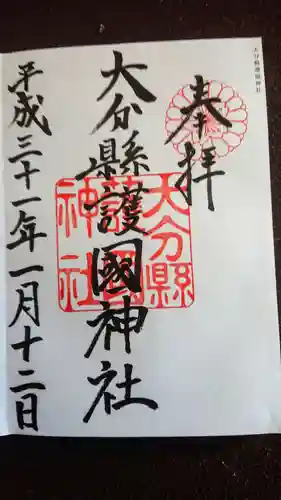 大分縣護國神社
奉拝
大分縣護國神社
平成三十一年一月十二日
大分縣護國神社